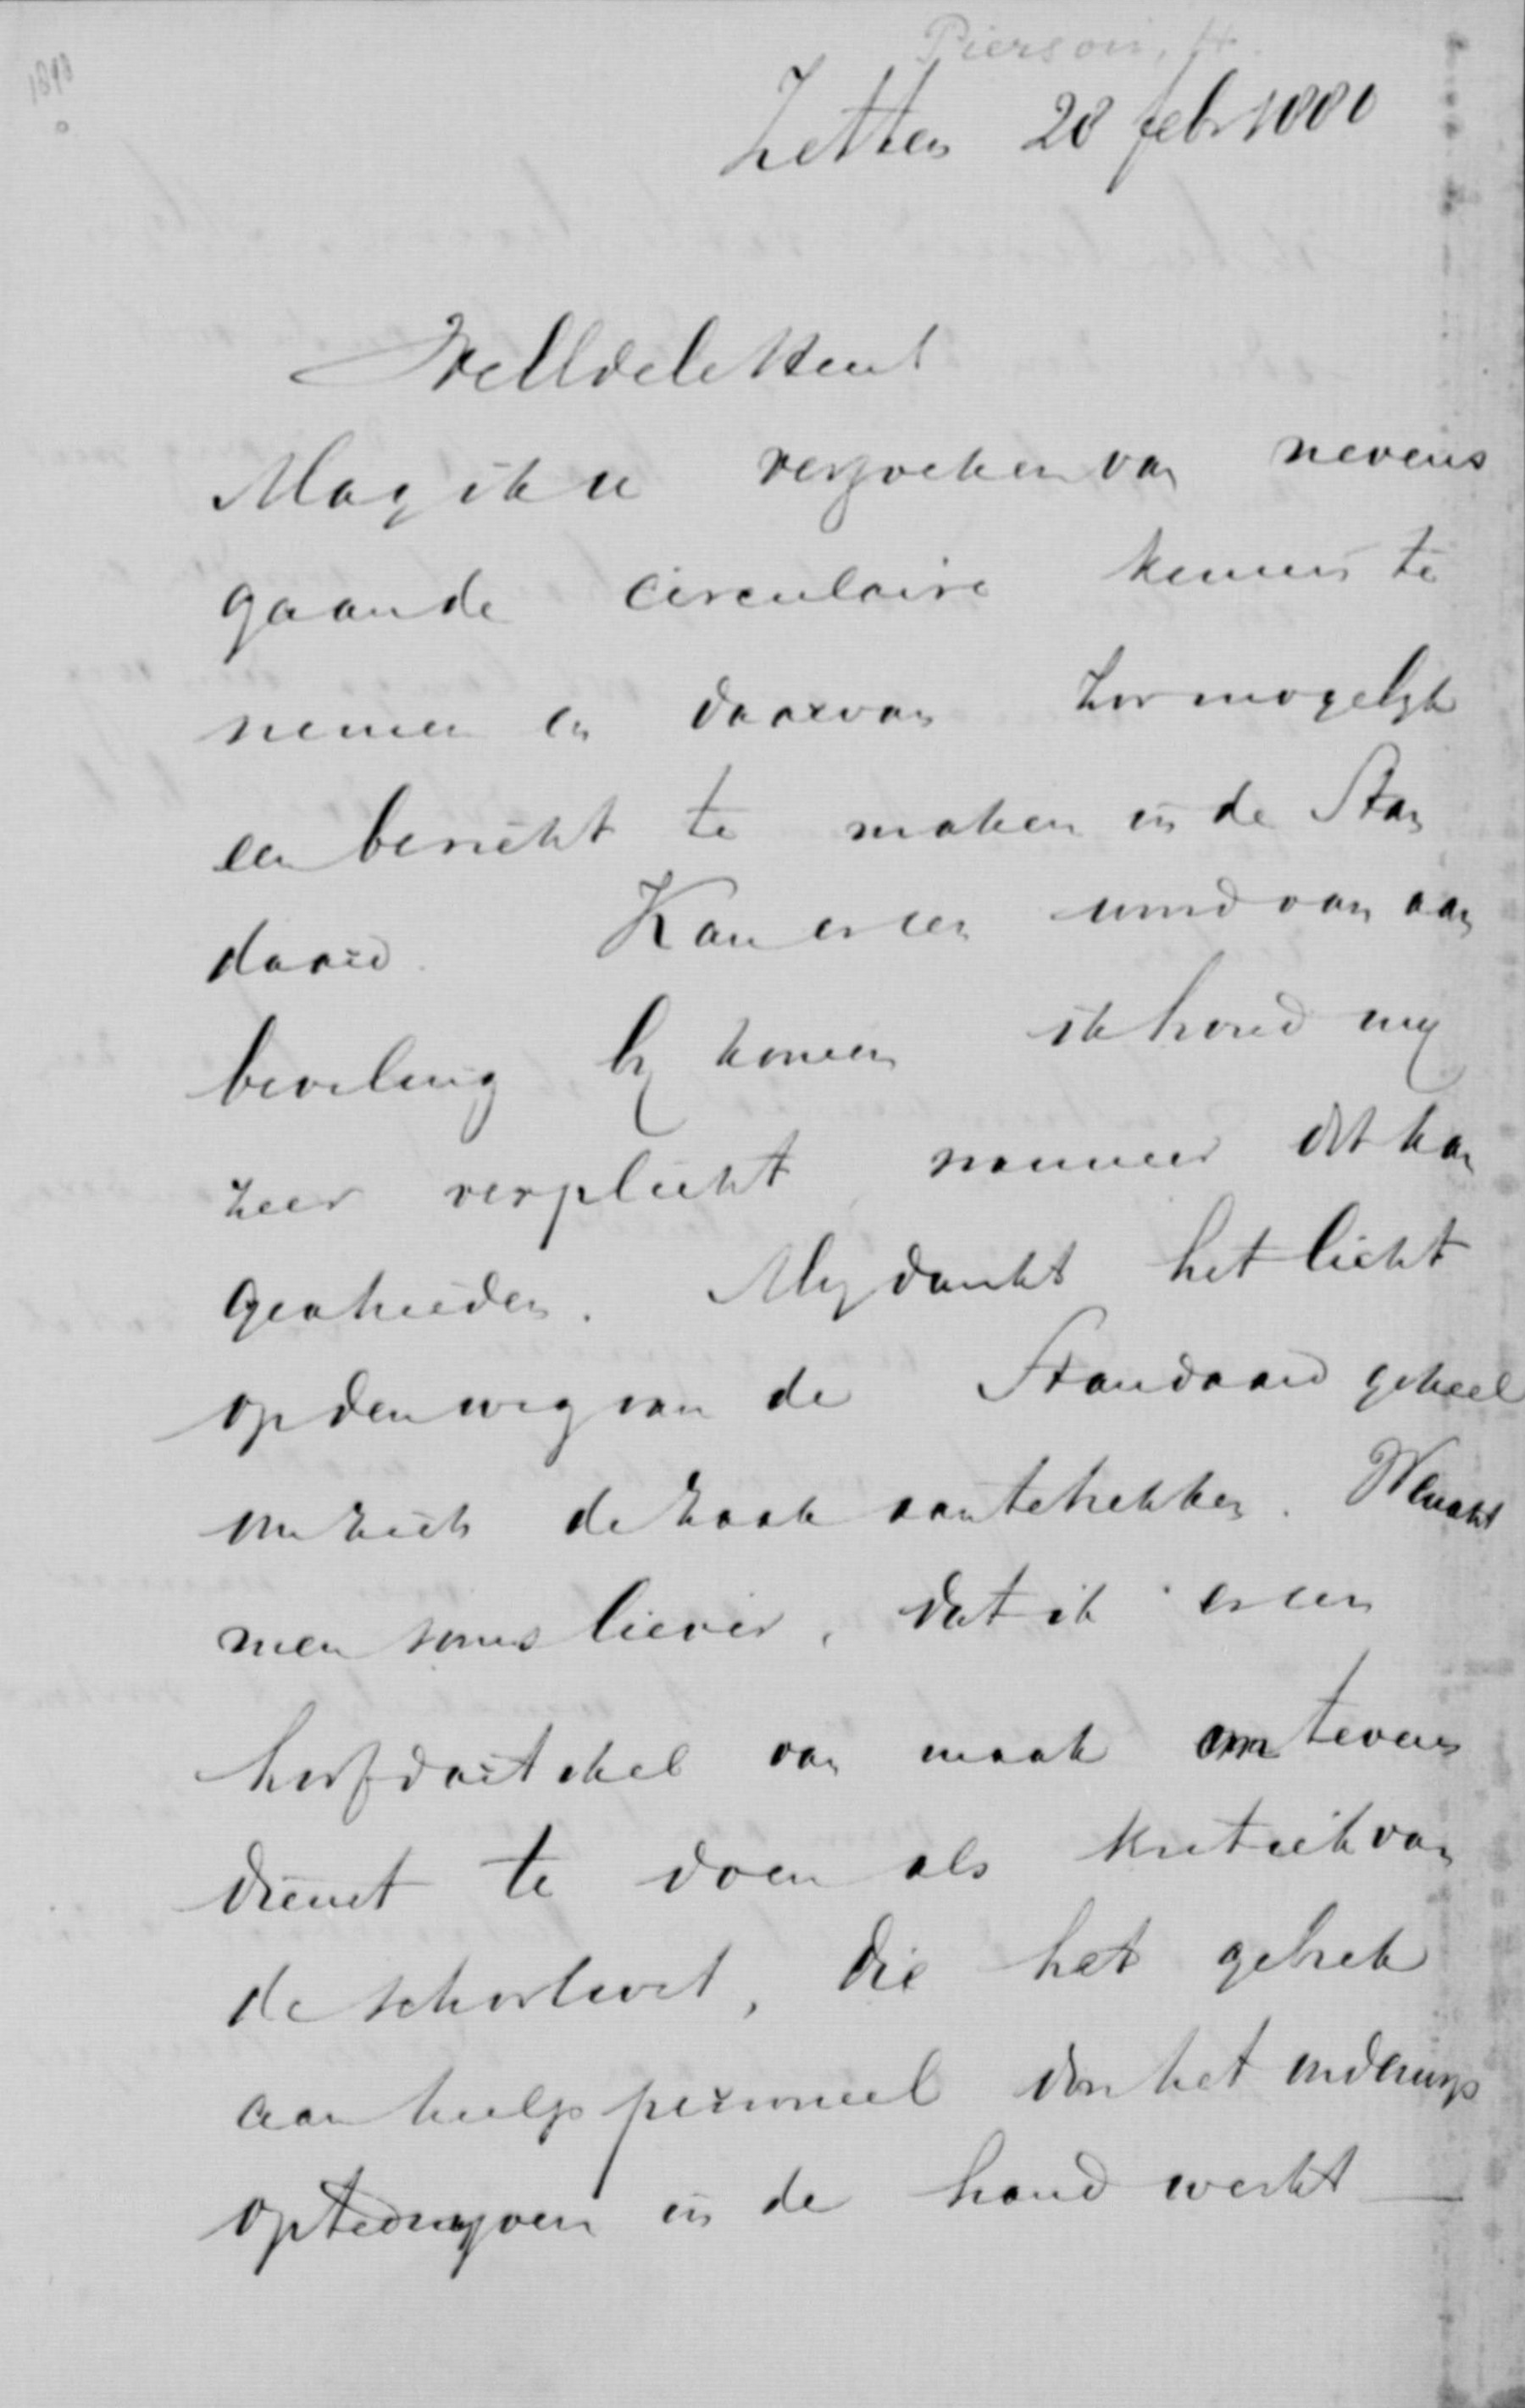 Pierson, H.
1890
Zetten 28 febr 1880
WelEdele Heer!
Mag ik u verzoeken van nevens
gaande circulaire kennis te
nemen en daarvan zoo mogelyk
een bericht te maken in de Stan
daard. Kan er een woord van aan
beveling by komen ik houd my
zeer verplicht, wanneer dit kan
geschieden. My dunkt het licht
op den weg van de Standaard geheel
om zich de zaak aantetrekken. Wenscht
men soms liever, dat ik er een
hoofdartikel van maak om tevens
dienst te doen als kritiek van
de schoolwet, die het gebrek
aan hulppersoneel door het onderwys
optedryven in de hand werkt —